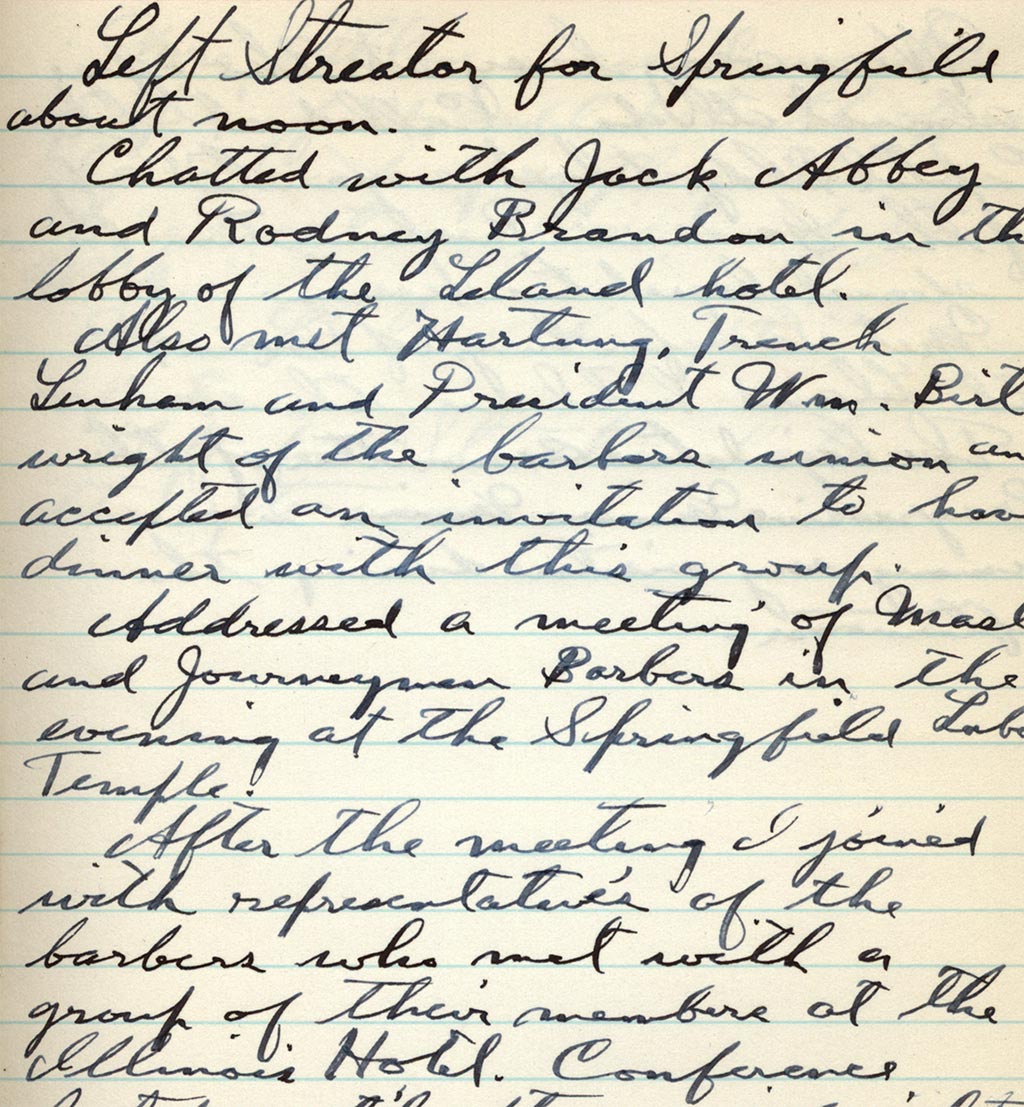 Left Streator for Springfield
about noon.
Chatted with Jack Abbey
and Rodney Brandon in th
lobby of the Leland hotel.
Also met Hartung, Trench
Lenham and President Wm. Birt
wright of the barbers union an
accepted an invitation to hav
dinner with this group.
Addressed a meeting of Mast
and Journeymen Barbers in the
evening at the Springfield Labo
Temple.
After the meeting I joined
with representatives of the
barbers who met with a
group of their members at the
Illinois Hotel. Conference